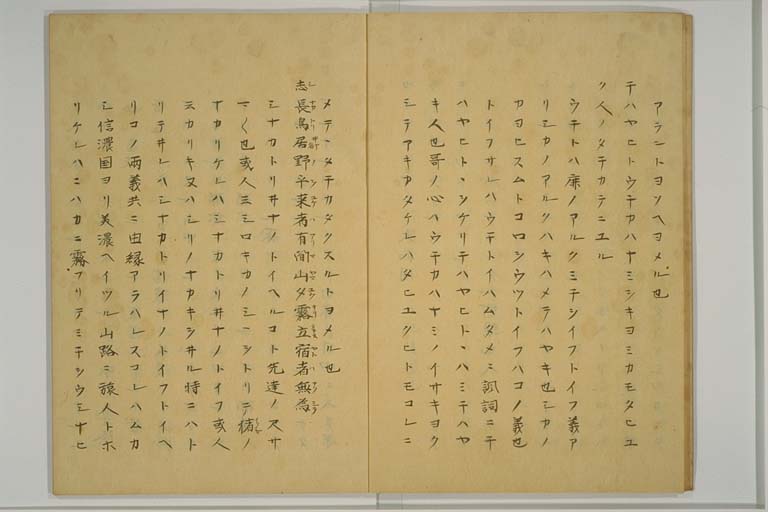 アラントヨソヘヨメル也
テハヤヒトウチカハナミシキヨミカモタヒユ
ク人ノタチカテニエル
ウチトハ鹿ノアルクミチシイフトイフ義ア
リシカノアルクハキハメテハヤキ也シカノ
カヨヒスムトコロシウツトイフハコノ義也
トイフサレハウチトイハムタメニ諷詞ニテ
ハヤヒトヽシケリテハヤヒトヽハミテハヤ
キ人也哥ノ心ハウチカハナミノイサキヨク
シテアキカタケレハタヒユクヒトモコレニ
メテヽタチカタクスルトヨメル也
志長鳥居野乎来者有間山夕霧立宿者無為
シナカトリ井ナノトイヘルコト先達ノ尺サ
マく也或人云ミロキカノミーシトリテ猪ノ
ナカリケレハシナカトリ井ナノトイフ或人
云カリキヌハシリノナカキシ井ル時ニハト
リテ井レハシナカトリイナノトイフトイヘ
リコノ両義共ニ由緒アラハレスコレハムカ
シ信濃国ヨリ美濃ヘイツル山路ニ旅人トホ
リケレハニハカニ霧フリテミチシウシナヒ